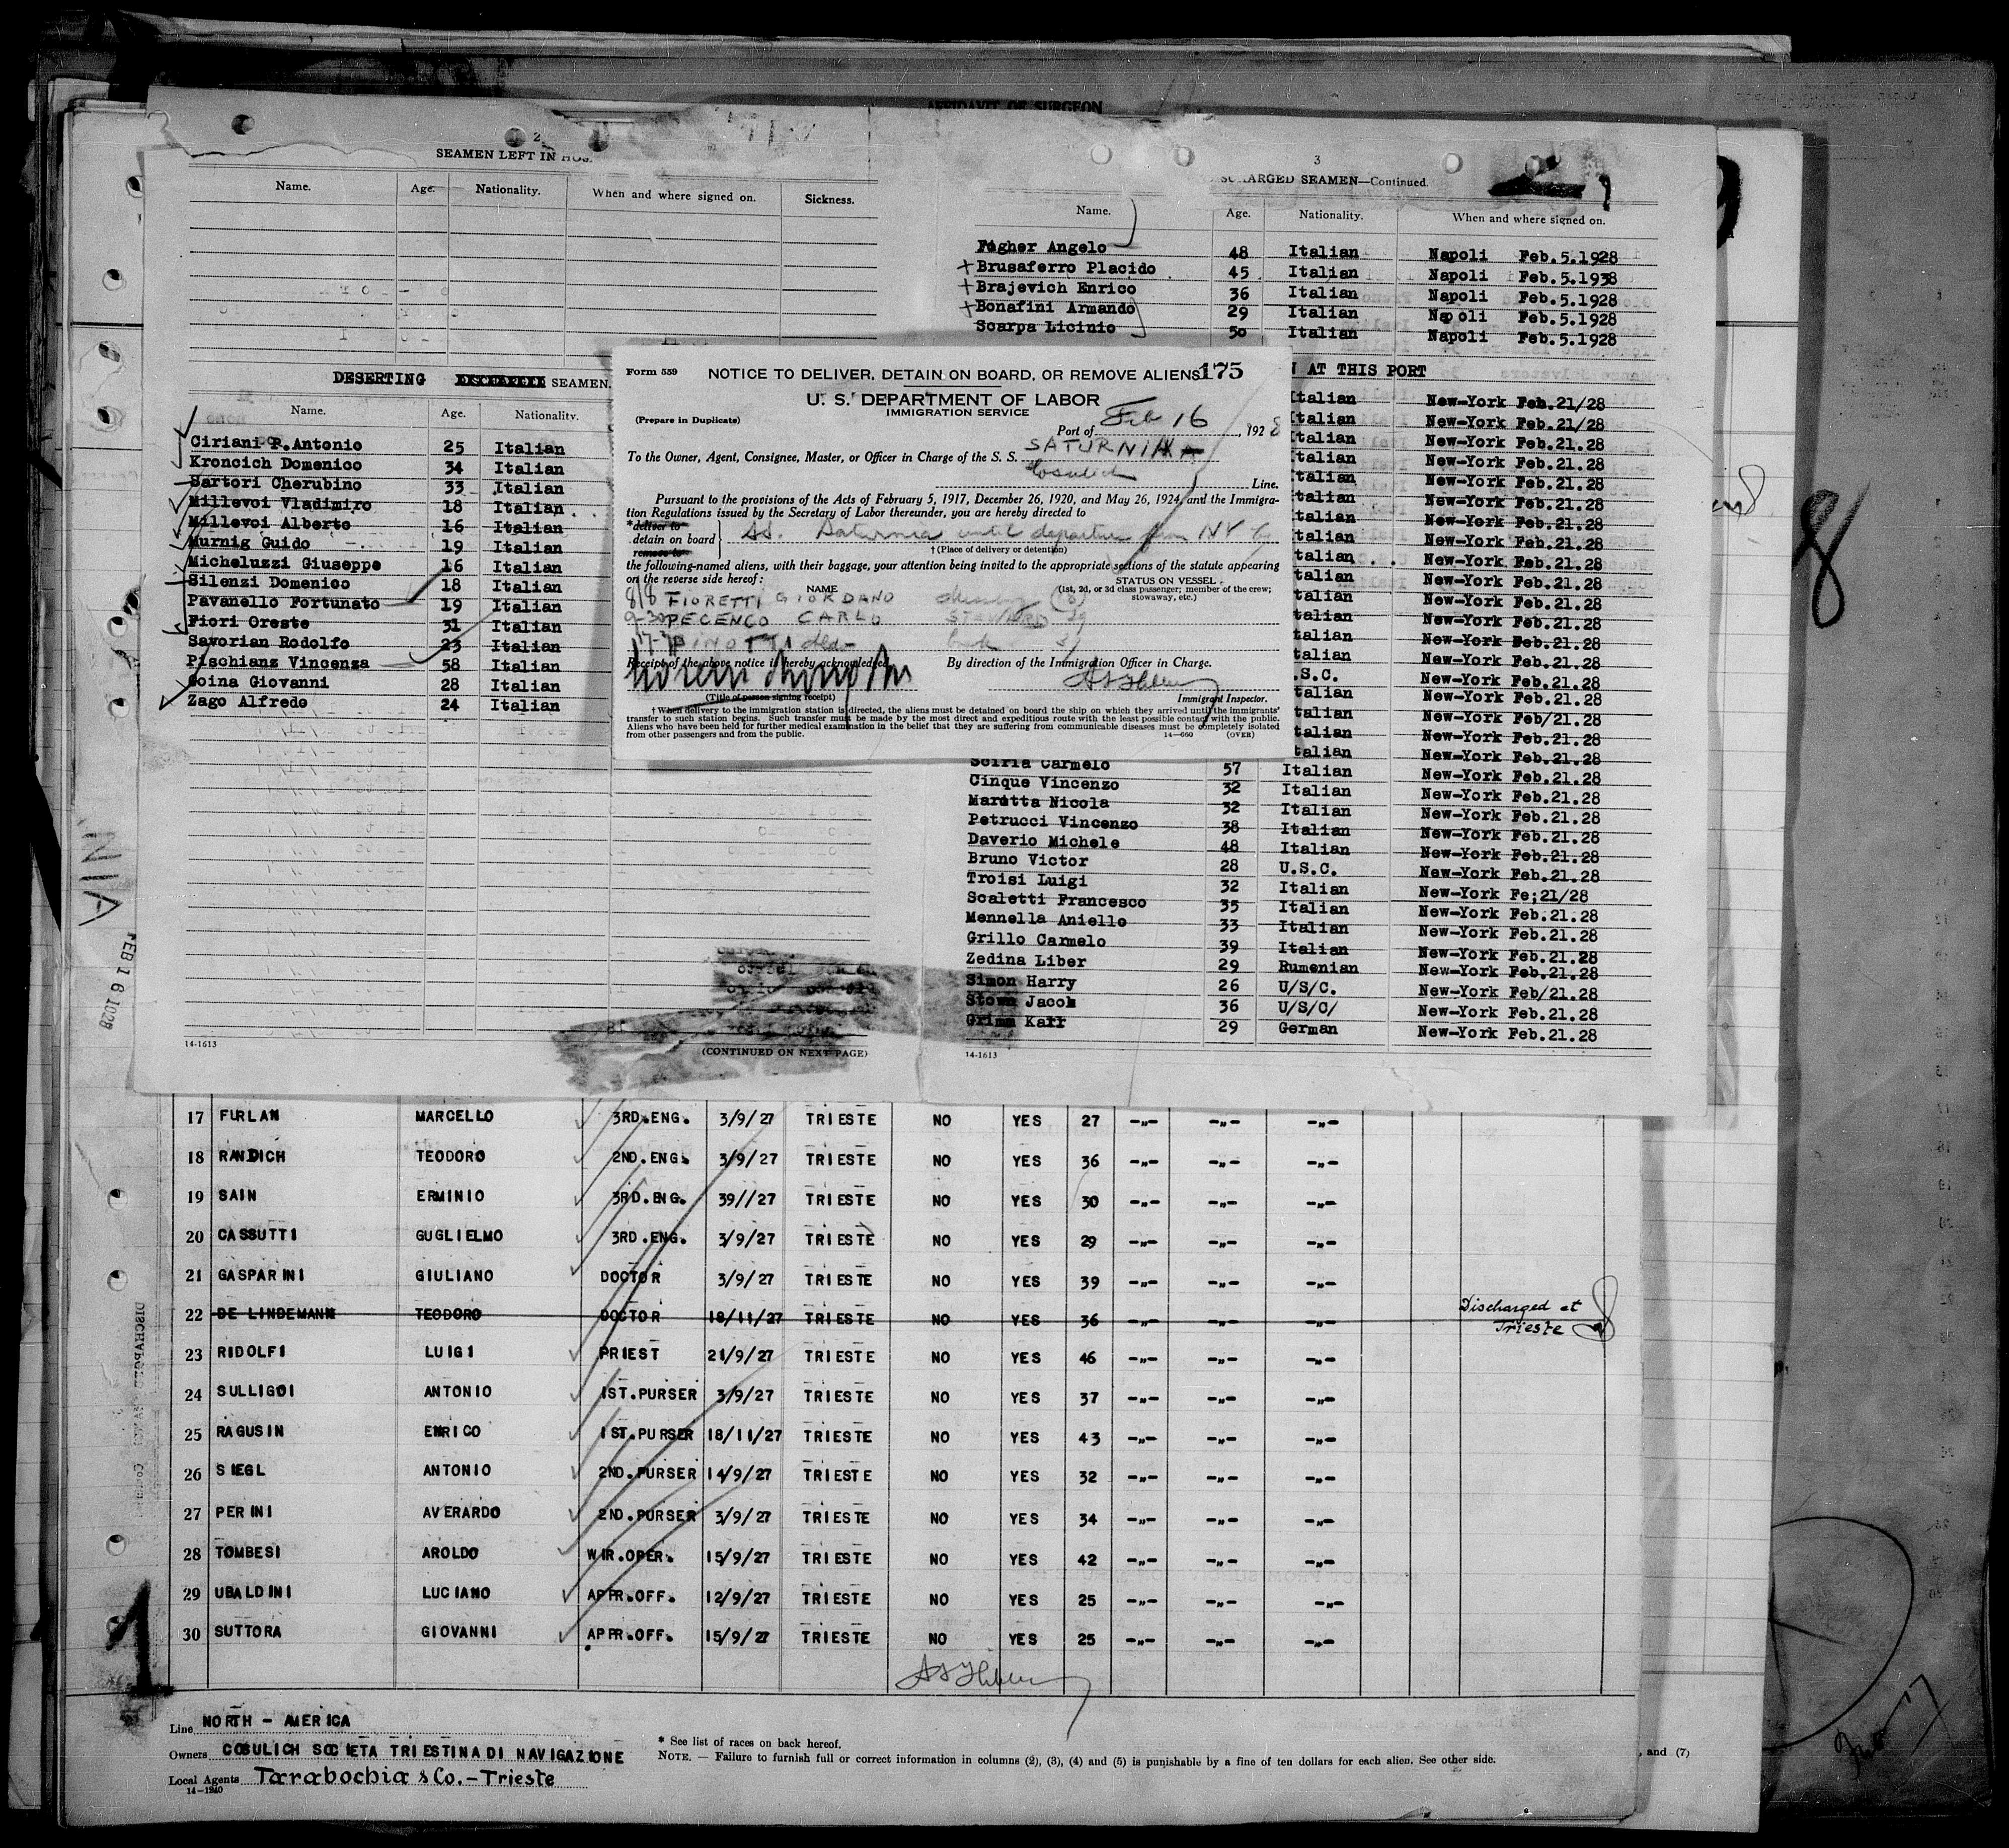 AFFIDAVIT OF SURGEON
2
SEAMEN LEFT IN
Name. Age. Nationality. When and where signed on. Sickness.
DESERTING SEAMEN.
Name. Age. Nationality.
Ciriani P. Antonio 25 Italian
Kroncich Domenico 34 Italian
Sartori Cherubino 33 Italian
Millevoi Vladimiro 18 Italian
Millevoi Alberto 16 Italian
Murnig Guido 19 Italian
Micheluzzi Giuseppe 16 Italian
Silenzi Domenico 18 Italian
Pavanello Fortunato 19 Italian
Fiori Oreste 31 Italian
Savorian Rodolfo 23 Italian
Pischianz Vincenza 58 Italian
Coina Giovanni 28 Italian
Zago Alfredo 24 Italian
14-1613
(CONTINUED ON NEXT PAGE)
3
SCHARGED SEAMEN—Continued.
Name. Age. Nationality. When and where signed on.
Fogher Angelo 48 Italian Napoli Feb.5.1928
Brusaferro Placido 45 Italian Napoli Feb.5.1938
Brajevich Enrico 36 Italian Napoli Feb.5.1928
Bonafini Armando 29 Italian Napoli Feb.5.1928
Scarpa Licinio 50 Italian Napoli Feb.5.1928
N AT THIS PORT
Italian New-York Feb.21/28
Italian New-York Feb.21/28
Italian New-York Feb.21.28
Italian New-York Feb.21.28
talian New-York Feb.21.28
talian New-York Feb.21.28
talian New-York Feb.21.28
talian New-York Feb.21.28
talian New-York Feb.21.28
talian New-York Feb.21.28
talian New-York Feb.21.28
talian New-York Feb.21.28
talian New-York Feb.21.28
talian New-York Feb.21.28
.S.C. New-York Feb.21.28
talian New-York Feb.21.28
talian New-York Feb/21.28
talian New-York Feb.21.28
talian New-York Feb.21.28
Sciria Carmelo 57 Italian New-York Feb.21.28
Cinque Vincenzo 32 Italian New-York Feb.21.28
Marotta Nicola 32 Italian New-York Feb.21.28
Petrucci Vincenzo 38 Italian New-York Feb.21.28
Daverio Michele 48 Italian New-York Feb.21.28
Bruno Victor 28 U.S.C. New-York Feb.21.28
Troisi Luigi 32 Italian New-York Fe;21/28
Scaletti Francesco 35 Italian New-York Feb.21.28
Mennella Aniello 33 Italian New-York Feb.21.28
Grillo Carmelo 39 Italian New-York Feb.21.28
Zedina Liber 29 Rumenian New-York Feb.21.28
Simon Harry 26 U/S/C. New-York Feb/21.28
Stown Jacob 36 U/S/C/ New-York Feb.21.28
Grimm Karr 29 German New-York Feb.21.28
14-1613
Form 559 NOTICE TO DELIVER, DETAIN ON BOARD, OR REMOVE ALIENS 175
U. S. DEPARTMENT OF LABOR
IMMIGRATION SERVICE
(Prepare in Duplicate)
Port of Feb 16, 1928
To the Owner, Agent, Consignee, Master, or Officer in Charge of the S. S. SATURNIA
Cosulich Line.
Pursuant to the provisions of the Acts of February 5, 1917, December 26, 1920, and May 26, 1924, and the Immigra-
tion Regulations issued by the Secretary of Labor thereunder, you are hereby directed to
*deliver to
detain on board SS. Saturnia until departure from NY
remove to
† (Place of delivery or detention)
the following-named aliens, with their baggage, your attention being invited to the appropriate sections of the statute appearing
on the reverse side hereof:
NAME STATUS ON VESSEL
(1st, 2d, or 3d class passenger; member of the crew; stowaway, etc.)
8/8 FIORETTI GIORDANO
9-30 PECENCO CARLO STEWARD 29
Receipt of the above notice is hereby acknowledged. By direction of the Immigration Officer in Charge.
(Title of person signing receipt) Immigrant Inspector.
† When delivery to the immigration station is directed, the aliens must be detained on board the ship on which they arrived until the immigrants'
transfer to such station begins. Such transfer must be made by the most direct and expeditious route with the least possible contact with the public.
Aliens who have been held for further medical examination in the belief that they are suffering from communicable diseases must be completely isolated
from other passengers and from the public. 14—660 (OVER)
8
NIA
FEB 16 1928
17 FURLAN MARCELLO 3RD.ENG. 3/9/27 TRIESTE NO YES 27 -"- -"- -"-
18 RANDICH TEODORO 2ND.ENG. 3/9/27 TRIESTE NO YES 36 -"- -"- -"-
19 SAIN ERMINIO 3RD.ENG. 39//27 TRIESTE NO YES 30 -"- -"- -"-
20 CASSUTTI GUGLIELMO 3RD.ENG. 3/9/27 TRIESTE NO YES 29 -"- -"- -"-
21 GASPARINI GIULIANO DOCTOR 3/9/27 TRIESTE NO YES 39 -"- -"- -"-
22 DE LINDEMANN TEODORO DOCTOR 18/11/27 TRIESTE NO YES 36 -"- -"- -"- Discharged at Trieste
23 RIDOLFI LUIGI PRIEST 21/9/27 TRIESTE NO YES 46 -"- -"- -"-
24 SULLIGOI ANTONIO 1ST.PURSER 3/9/27 TRIESTE NO YES 37 -"- -"- -"-
25 RAGUSIN ENRICO 1ST.PURSER 18/11/27 TRIESTE NO YES 43 -"- -"- -"-
26 SIEGL ANTONIO 2ND.PURSER 14/9/27 TRIESTE NO YES 32 -"- -"- -"-
27 PERINI AVERARDO 2ND.PURSER 3/9/27 TRIESTE NO YES 34 -"- -"- -"-
28 TOMBESI AROLDO WIR.OPER. 15/9/27 TRIESTE NO YES 42 -"- -"- -"-
29 UBALDINI LUCIANO APPR.OFF. 12/9/27 TRIESTE NO YES 25 -"- -"- -"-
30 SUTTORA GIOVANNI APPR.OFF. 15/9/27 TRIESTE NO YES 25 -"- -"- -"-
1
Line NORTH - AMERICA
Owners COSULICH SOCIETA TRIESTINA DI NAVIGAZIONE
Local Agents Tarabochia & Co. - Trieste
14-1240
* See list of races on back hereof.
NOTE. — Failure to furnish full or correct information in columns (2), (3), (4) and (5) is punishable by a fine of ten dollars for each alien. See other side.
, and (7)